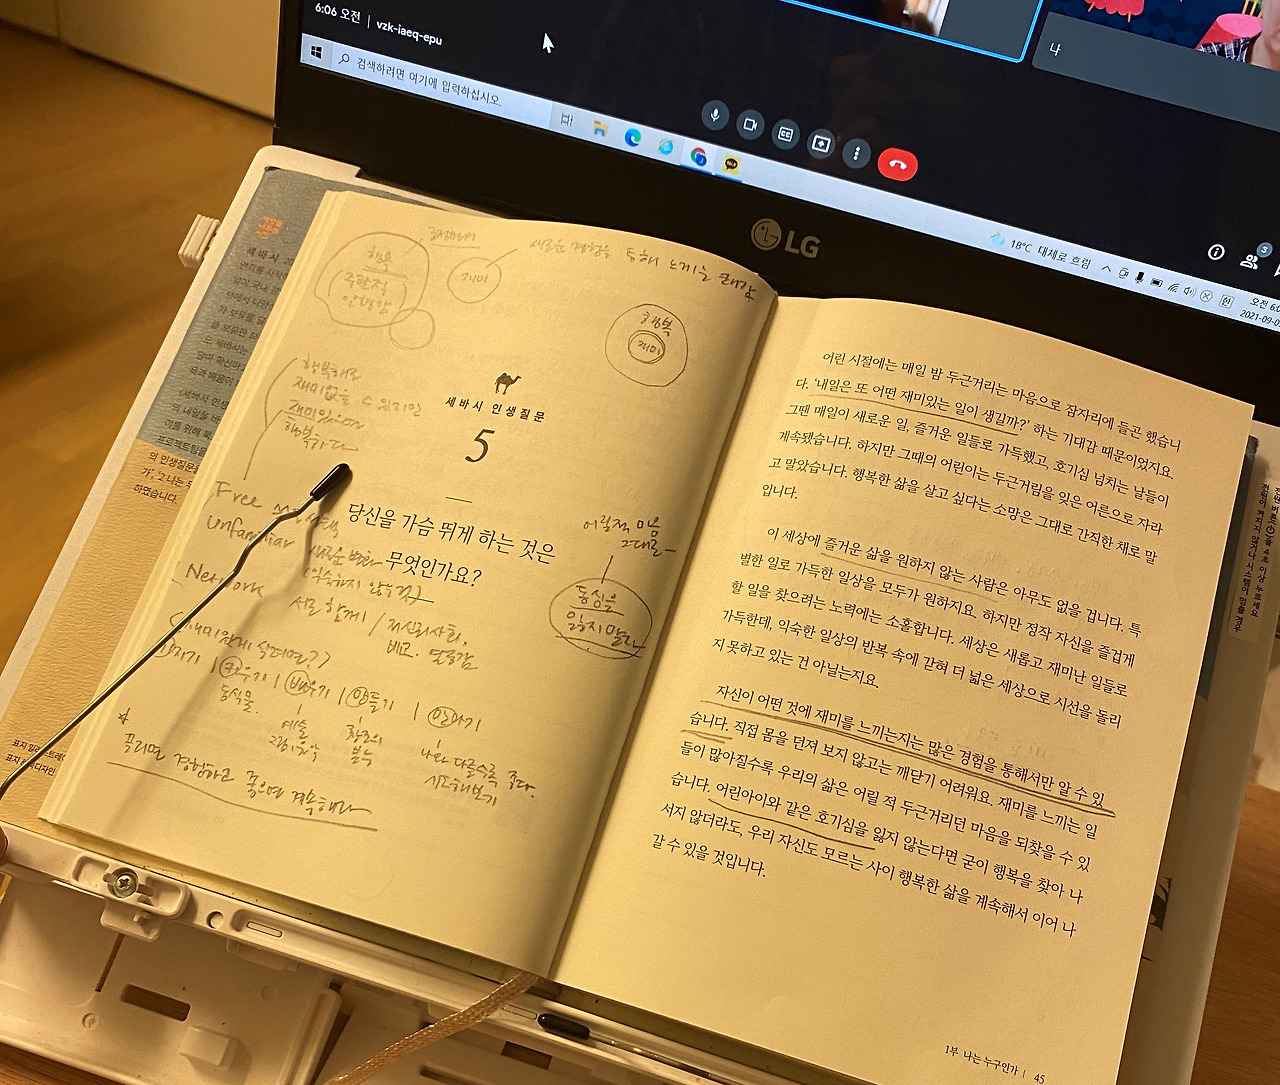 6:06 오전 | vzk-iaeq-epu
나
검색하려면 여기에 입력하십시오.
LG
18°C 대체로 흐림
3
한
오전 6:0
2021-09-0
행복
주관적
안녕감
재미
새로운 경험을 통해 느끼는 쾌감
행복
재미
행복해도
재미없을 수 있지만
재미있으면
행복하다
세바시 인생질문
5
당신을 가슴 뛰게 하는 것은
무엇인가요?
Free
unfamiliar
새로운 변화
(익숙하지 않는 것)
Network
서로 함께 /
비교.
어릴적 마음
그대로
동심을
잃지 말라
배우기
만들기
동식물.
예술
나와 다를수록 좋다.
시도해보기
끌리면 경험하고 좋으면 계속해라
어린 시절에는 매일 밤 두근거리는 마음으로 잠자리에 들곤 했습니
다. '내일은 또 어떤 재미있는 일이 생길까?' 하는 기대감 때문이었지요.
그땐 매일이 새로운 일, 즐거운 일들로 가득했고, 호기심 넘치는 날들이
계속됐습니다. 하지만 그때의 어린이는 두근거림을 잊은 어른으로 자라
고 말았습니다. 행복한 삶을 살고 싶다는 소망은 그대로 간직한 채로 말
입니다.
이 세상에 즐거운 삶을 원하지 않는 사람은 아무도 없을 겁니다. 특
별한 일로 가득한 일상을 모두가 원하지요. 하지만 정작 자신을 즐겁게
할 일을 찾으려는 노력에는 소홀합니다. 세상은 새롭고 재미난 일들로
가득한데, 익숙한 일상의 반복 속에 갇혀 더 넓은 세상으로 시선을 돌리
지 못하고 있는 건 아닐는지요.
자신이 어떤 것에 재미를 느끼는지는 많은 경험을 통해서만 알 수 있
습니다. 직접 몸을 던져 보지 않고는 깨닫기 어려워요. 재미를 느끼는 일
들이 많아질수록 우리의 삶은 어릴 적 두근거리던 마음을 되찾을 수 있
습니다. 어린아이와 같은 호기심을 잃지 않는다면 굳이 행복을 찾아 나
서지 않더라도, 우리 자신도 모르는 사이 행복한 삶을 계속해서 이어 나
갈 수 있을 것입니다.
1부 나는 누구인가 | 45